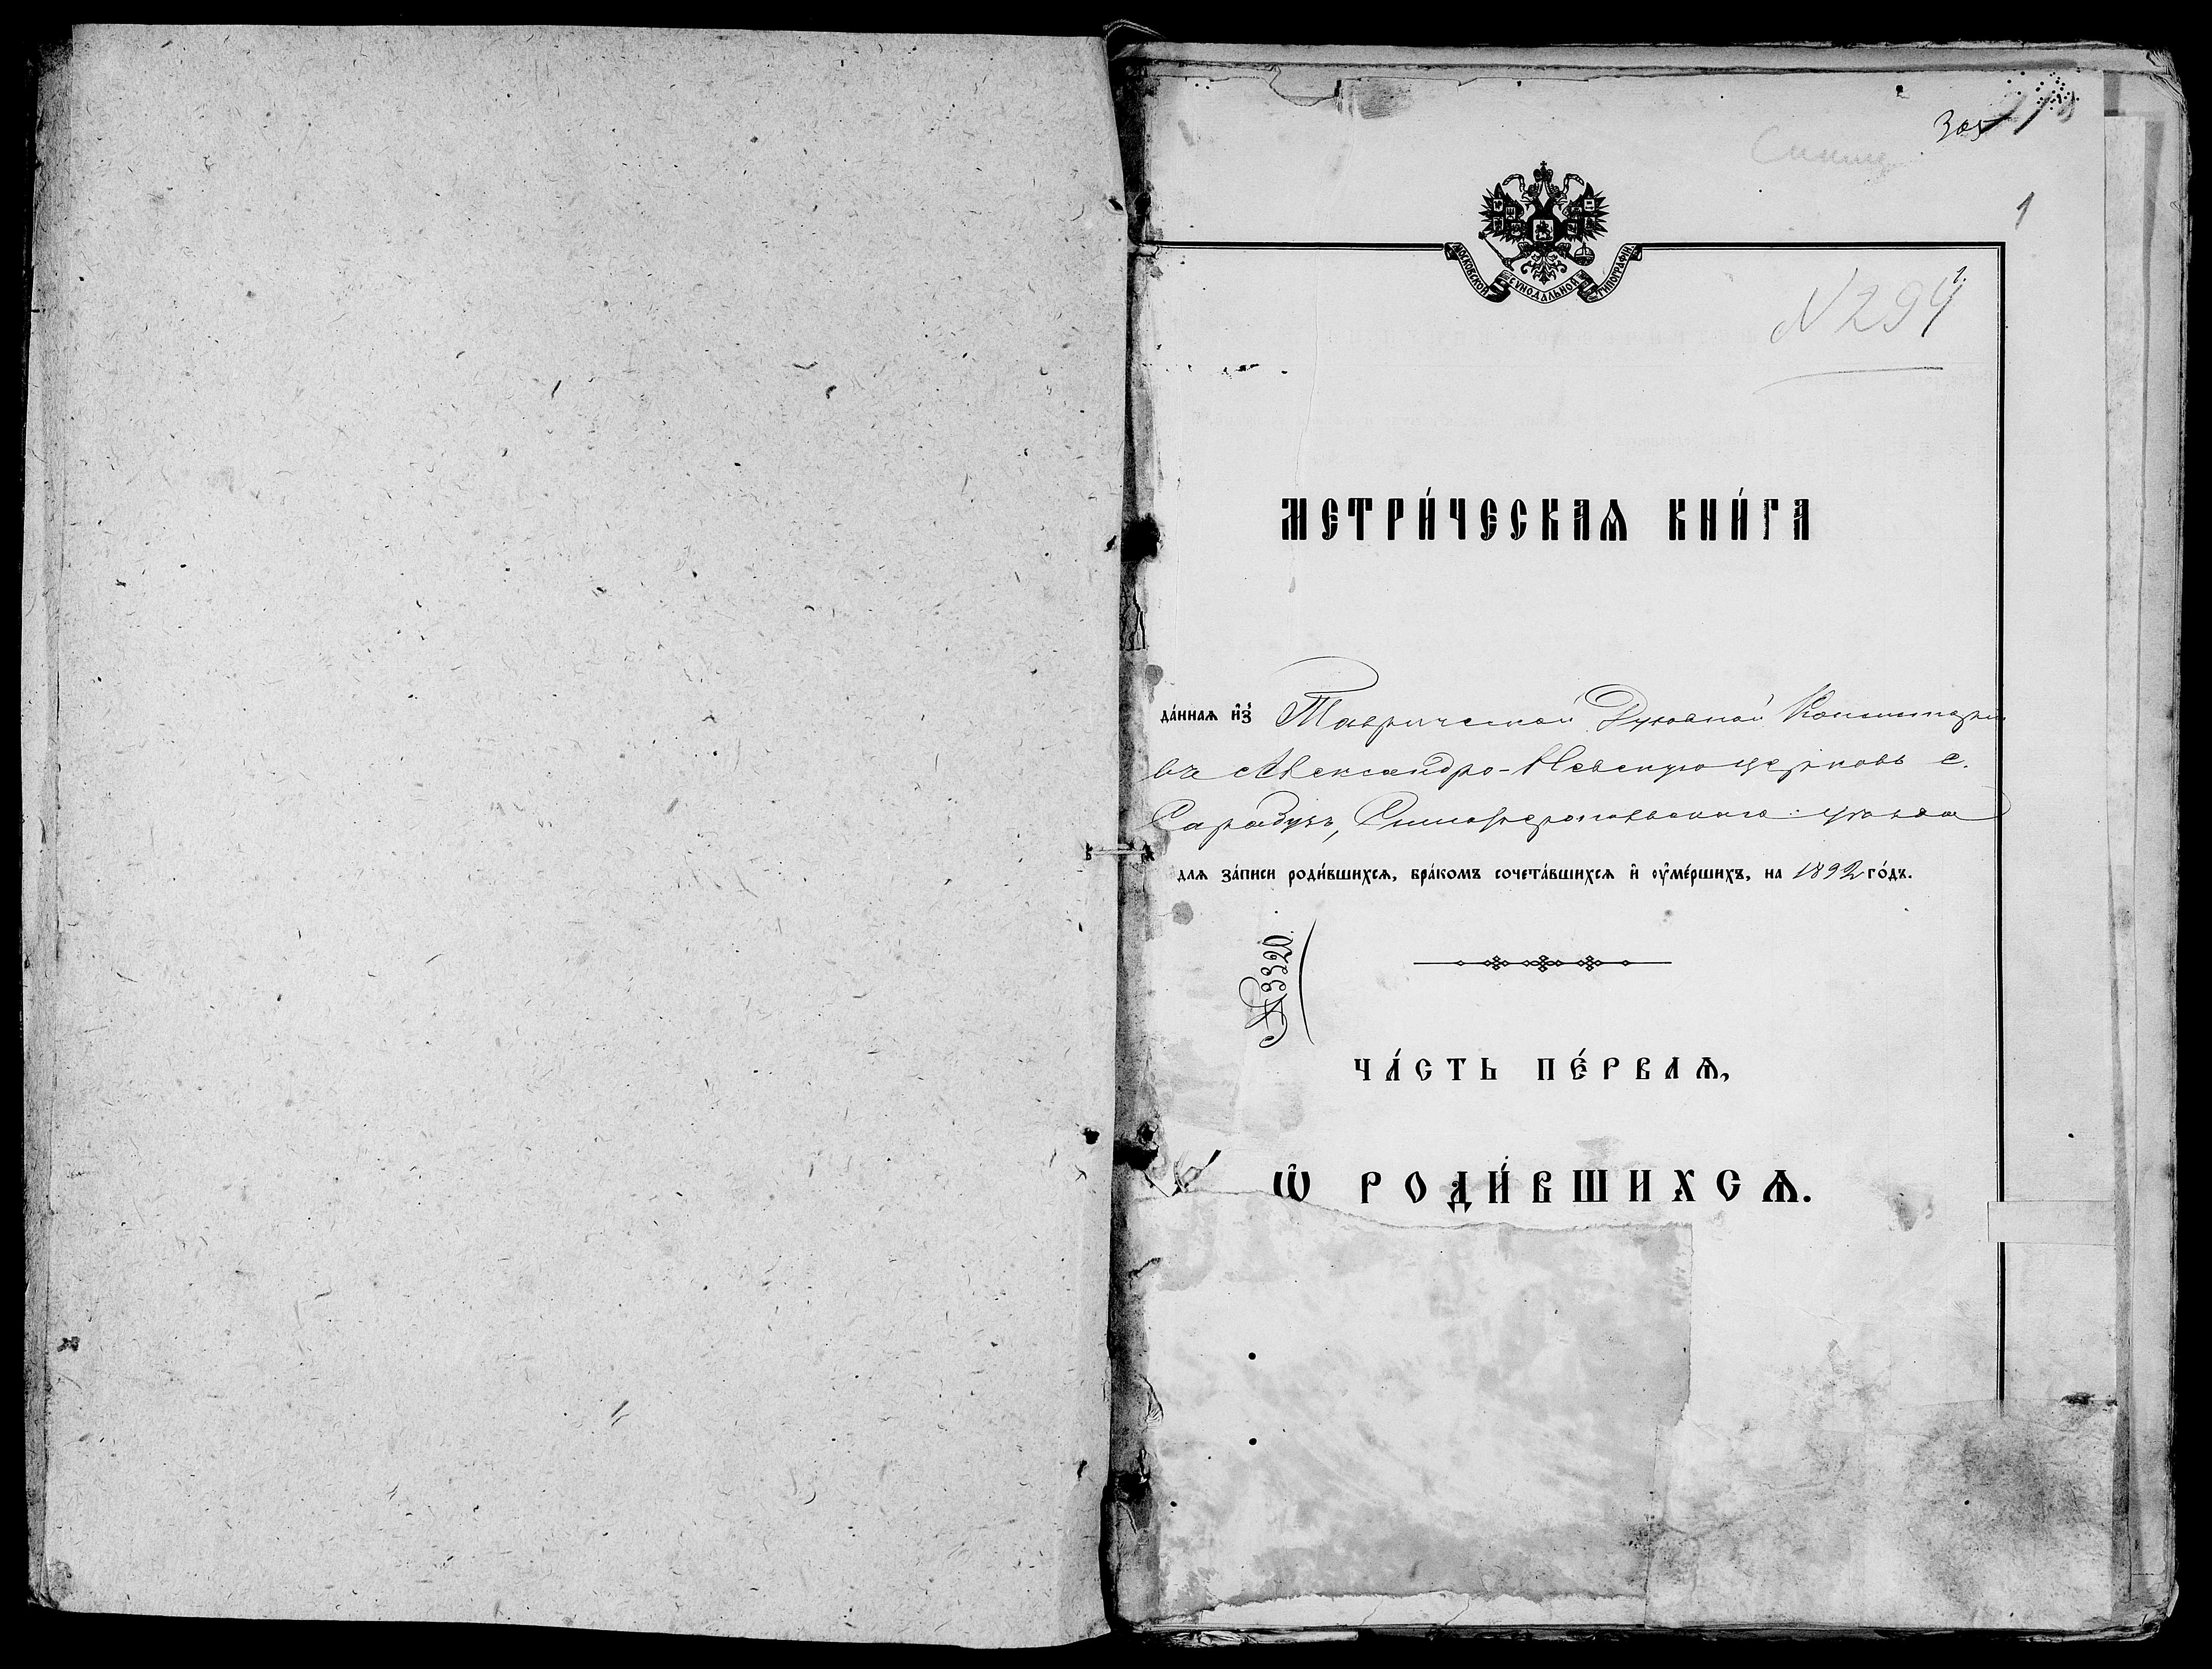 305
1
МОСКОВСКОЙ СѴНОДАЛЬНОЙ ТИПОГРАФІИ.
1.
N 294
МЕТРИ́ЧЕСКАѦ КНИ́ГА
да́ннаѧ и҆зъ Таврической Духовной Консисторіи
въ Александро-Невскую церковь с.
Сарабузъ, Симферопольскаго уѣзда
длѧ за́писи роди́вшихсѧ, бра́комъ сочета́вшихсѧ и҆ ᲂу҆ме́ршихъ, на 1892 го́дъ.
№ 3320.
ЧА́СТЬ ПЕ́РВАѦ,
Ѡ҆ РОДИ́ВШИХСѦ.